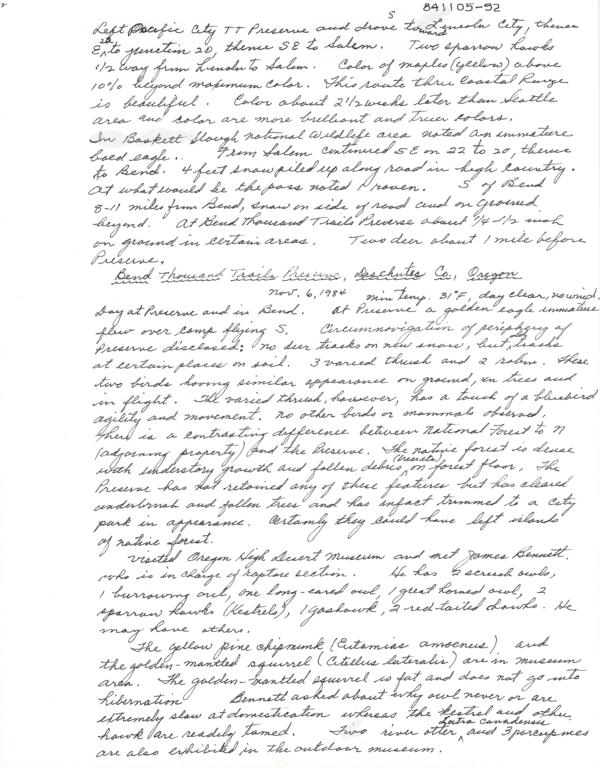 841105-92
Left Pacific City TT Preserve and drove S toward Lincoln City, thence
E to junction 20, thence SE to Salem. Two sparrow hawks
1/2 way from Lincoln to Salem. Color of maples (yellow) above
10% beyond maximum color. This route thru Coastal Range
is beautiful. Color about 2 1/2 weeks later than Seattle
area and color are more brilliant and truer colors.
In Baskett Slough National Wildlife area noted an immature
baed eagle. From Salem continued SE on 22 to 20, thence
to Bend. 4 feet snow piled up along road in high country.
At what would be the pass noted 1 raven. S of Bend
8-11 miles from Bend, snow on side of road and on ground
beyond. At Bend Thousand Trails Preserve about 1/4-1/2 inch
on ground in certain areas. Two deer about 1 mile before
Preserve.
Bend Thousand Trails Preserve, Deschutes Co, Oregon
Nov. 6, 1984 min temp. 31°F, day clear, no wind.
Day at Preserve and in Bend. At Preserve a golden eagle immature
flew over camp flying S. Circumnavigation of periphery of
Preserve disclosed: no deer tracks on new snow, but, tracks
at certain places on soil. 3 varied thrush and 2 robin. These
two birds having similar appearance on ground, in trees and
in flight. The varied thrush, however, has a touch of a bluebird
agility and movement. No other birds or mammals observed.
There is a contrasting difference between National Forest to N
(adjoining property) and the Preserve. The native forest is dense
with understory growth and fallen debris, on forest floor. The
Preserve has not retained any of these features but has cleared
underbrush and fallen trees and has infact trimmed to a city
park in appearance. Certainly they could have left islands
of native forest.
Visited Oregon High Desert Museum and met James Bennett.
who is in charge of rapture section. He has 2 screech owls,
1 burrowing owl, one long-eared owl, 1 great horned owl, 2
sparrow hawks (Kestrels), 1 goshawk, 2 red-tailed hawks. He
may have others.
The yellow pine chipmunk (Eutamias amoenus) and
the golden-mantled squirrel (Citellus lateralis) are in museum
area. The golden-mantled squirrel is fat and does not go into
hibernation Bennett asked about why owl never or are
extremely slow at domestication whereas the kestrel and other
hawk are readily tamed. Two river otter, Lutra canadensis and 3 porcupines
are also exhibited in the outdoor museum.